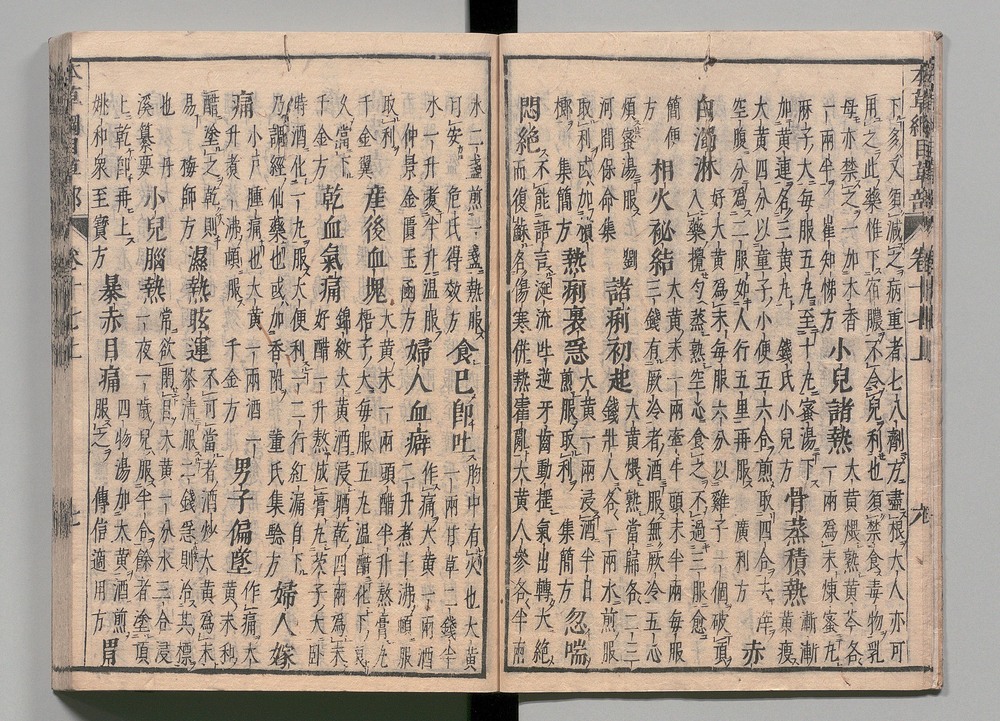 下多又須減之病重者七八劑方盡根大人亦可
用之此藥惟下宿膿不令兒利也須禁食毒物乳
母亦禁之一加木香
一兩半 崔知悌方
小兒諸熱
大黄煨熟黄芩各
一兩爲末煉蜜丸
麻子大每服五丸至十丸蜜湯下
加黄連名三黄丸 錢氏小兒方
骨蒸積熱
漸漸
黄瘦
大黄四分以童子小便五六合煎取四合去滓
空腹分爲二服如人行五里再服 廣利方
赤
白濁淋
好大黄爲末每服六分以雞子一個破頂
入藥攪勻蒸熟空心食之不過三服愈
簡便
方
相火秘結
大黄末一兩牽牛頭末半兩每服
三錢有厥冷者酒服無厥冷五心
煩蜜湯服 劉
河間保命集
諸痢初起
大黄煨熟當歸各二三
錢壯人各一兩水煎服
取利或加檳
榔 集簡方
熱痢裏急
大黄一兩浸酒半日
煎服取利 集簡方
忽喘
悶絶
不能語言涎流吐逆牙齒動揺氣出轉大絶
而復蘇名傷寒併熱霍亂大黄人參各半兩
水二盞煎一盞熱服
可安 危氏得效方
食已即吐
胸中有火也大黄
一兩甘草二錢半
水一升煮半升温服
仲景金匱玉函方
婦人血癖
作痛大黄一兩酒
二升煮十沸頓服
取利
千金翼
產後血塊
大黄末一兩頭醋半升熬膏丸
梧子大每服五丸温醋化下良
久當下
千金方
乾血氣痛
錦紋大黄酒浸晒乾四兩爲末
好醋一升熬成膏丸芡子大卧
時酒化一丸服大便利一二行紅漏自下
乃調經仙藥也或加香附 董氏集驗方
婦人嫁
痛
小戸腫痛也大黄一兩酒一
升煮一沸頓服 千金方
男子偏墜
作痛大
黄末和
醋塗之乾則
易 梅師方
濕熱眩運
不可當者酒炒大黄爲末
茶清服二錢急則治其標
也 丹
溪纂要
小兒腦熱
常欲閉目大黄一分水三合浸
一夜一歲兒服半合餘者塗頂
上乾即再上
姚和衆至寶方
暴赤目痛
四物湯加大黄酒煎
服之 傳信適用方
胃